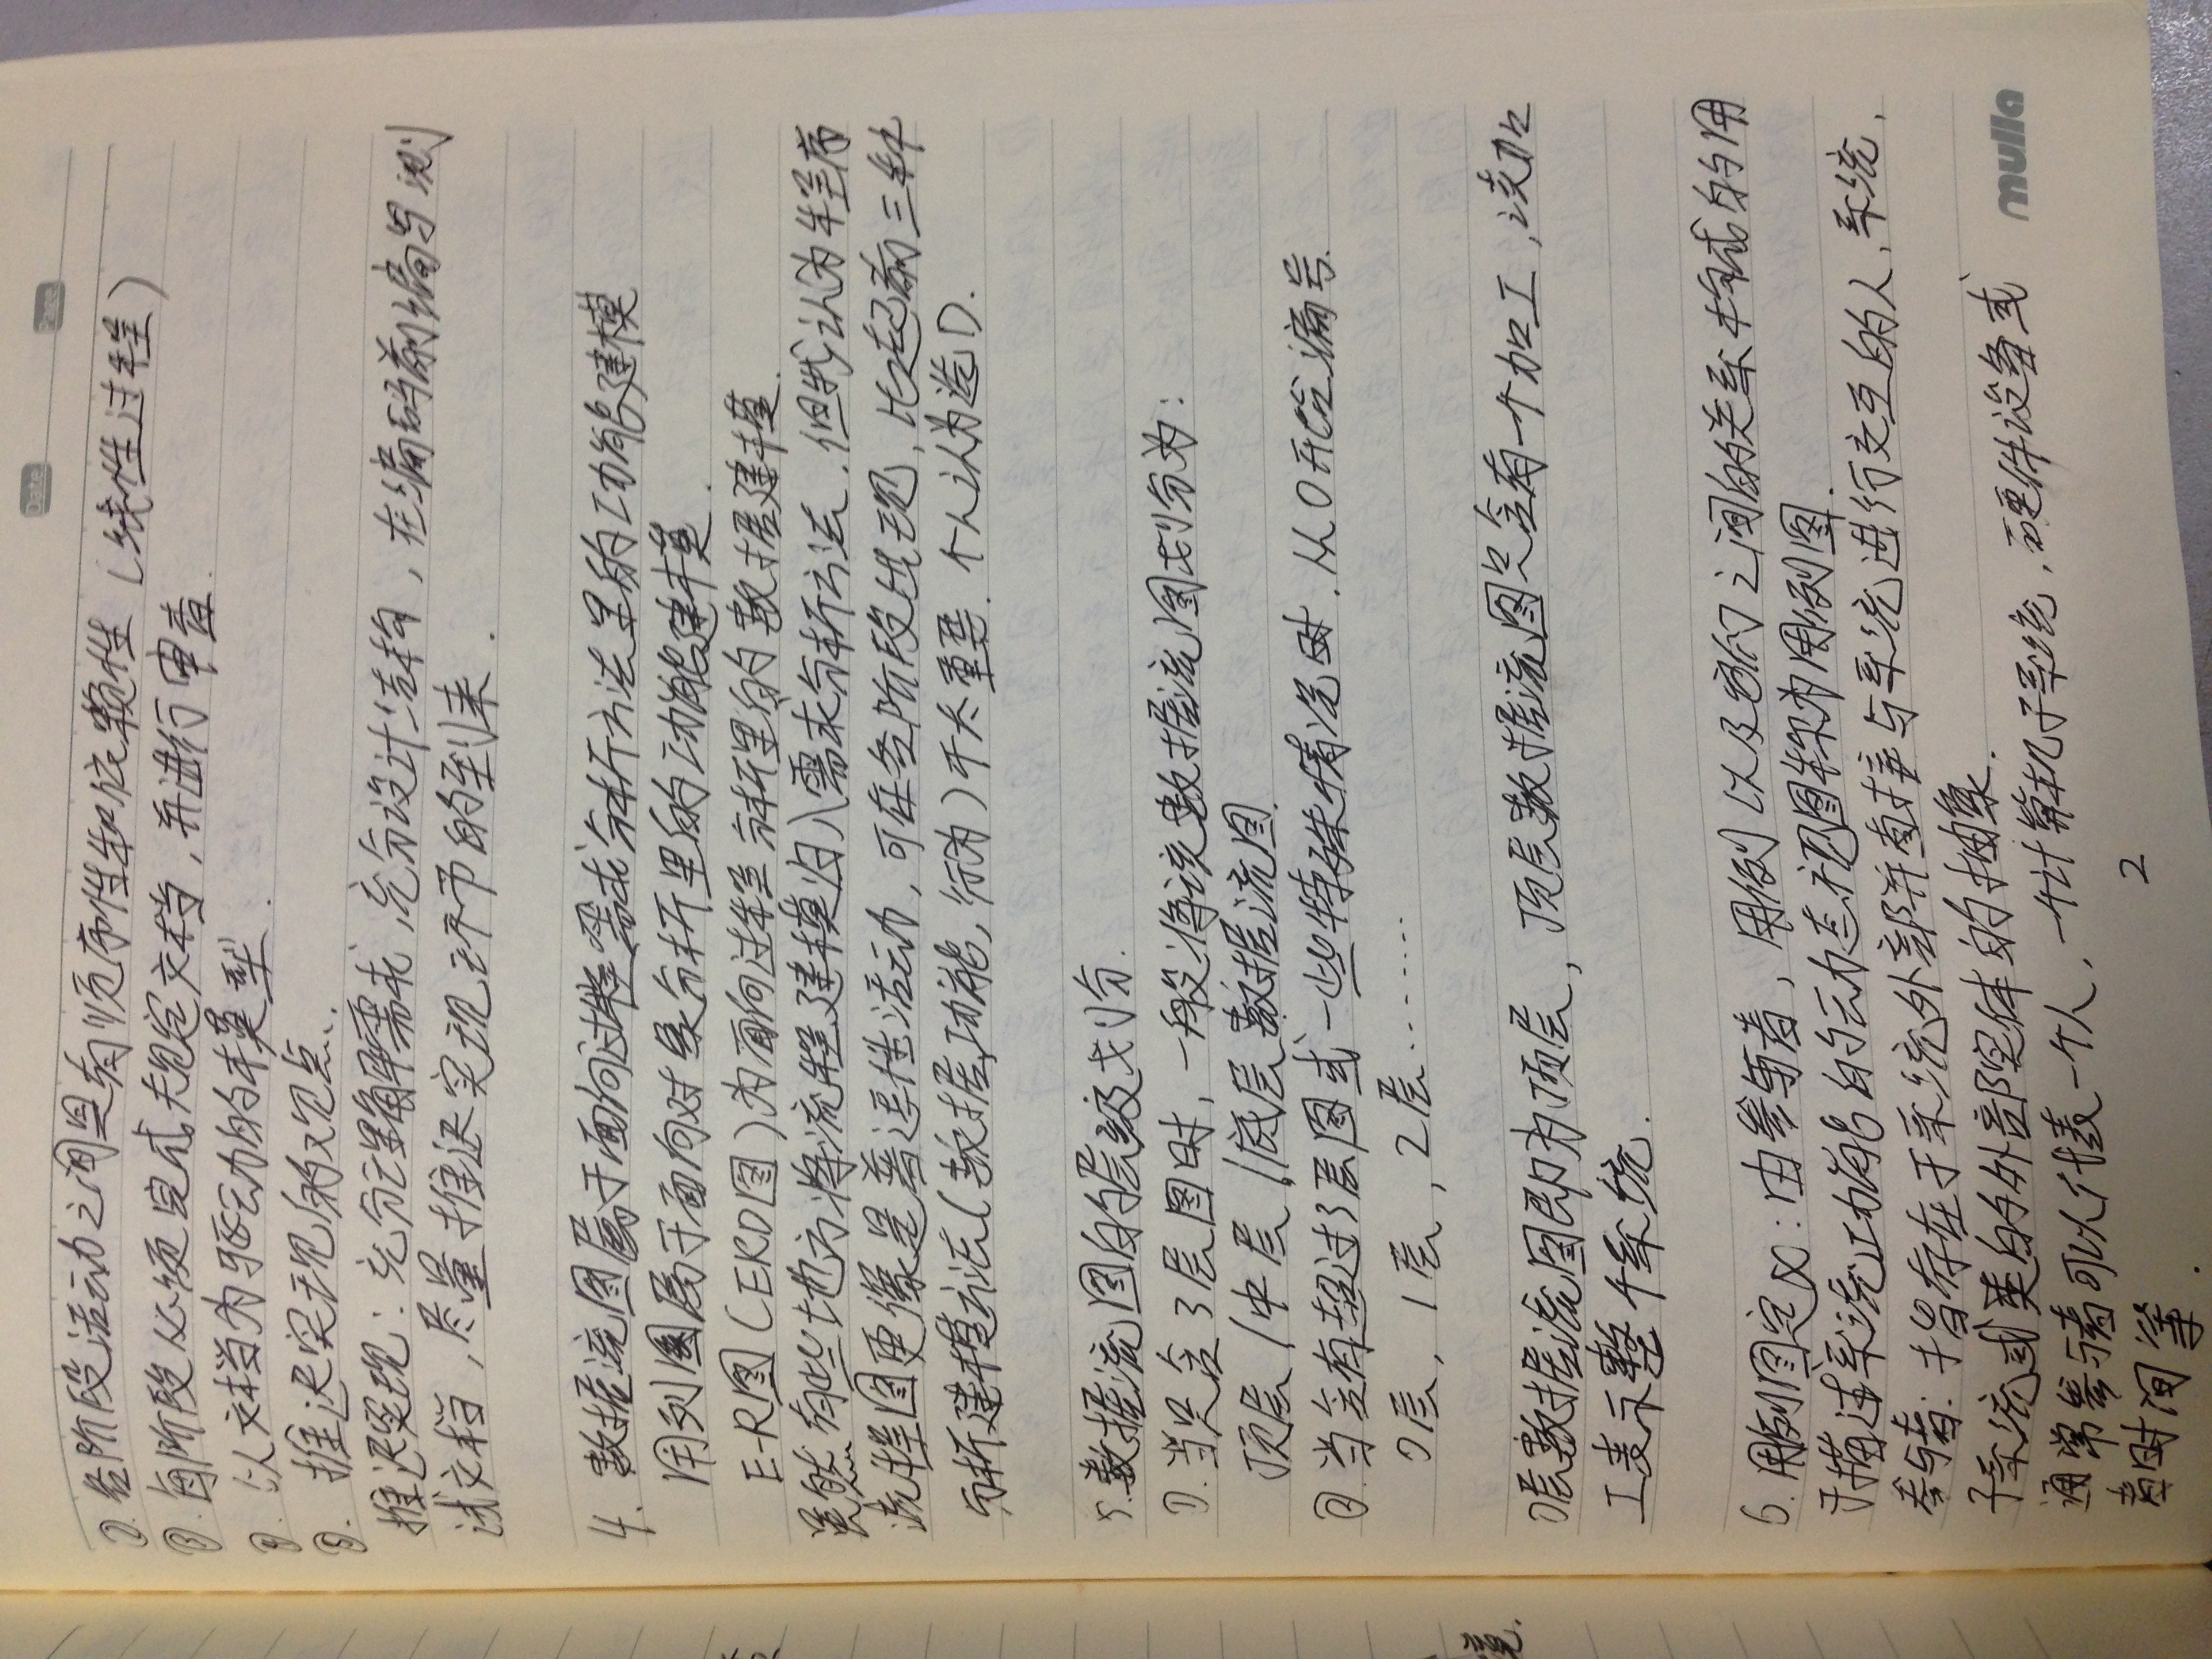 Date
Page
②.各阶段活动之间具有顺序性和依赖性(线性过程)
③.每阶段必须完成规定文档,并进行审查.
④.以文档为驱动的模型.
⑤.推迟实现的观点.
推迟实现:充分理解需求,充分设计结构,在编码前编写测
试文档,尽量推迟实现环节的到来.
4.数据流图属于面向过程需求分析方法里的功能建模
用例图属于面向对象分析里的功能建模.
E-R图(ERD图)为面向过程分析里的数据建模.
虽然有些地方将流程建模归入需求分析方法.但我认为程序
流程图更像是普适性活动,可在各阶段出现,比起前三种
分析建模方法(数据,功能,行为)不太重要.个人认为选D.
5.数据流图的层级划分.
①.当只含3层图时,一般将该数据流图划分为:
顶层/中层/底层数据流图.
②.当含有超过3层图或一些特殊情况时.从0开始编号.
0层,1层,2层……
0层数据流图即为顶层,顶层数据流图只含有一个加工,该加
工表示整个系统.
6.用例图定义:由参与者,用例以及它们之间的关系构成的用
于描述系统功能的动态视图称为用例图.
参与者:指存在于系统外部并直接与系统进行交互的人,系统,
子系统或类的外部实体的抽象.
通常参与者可以代表一个人,一个计算机子系统,硬件设备或
者时间等.
mulla
2